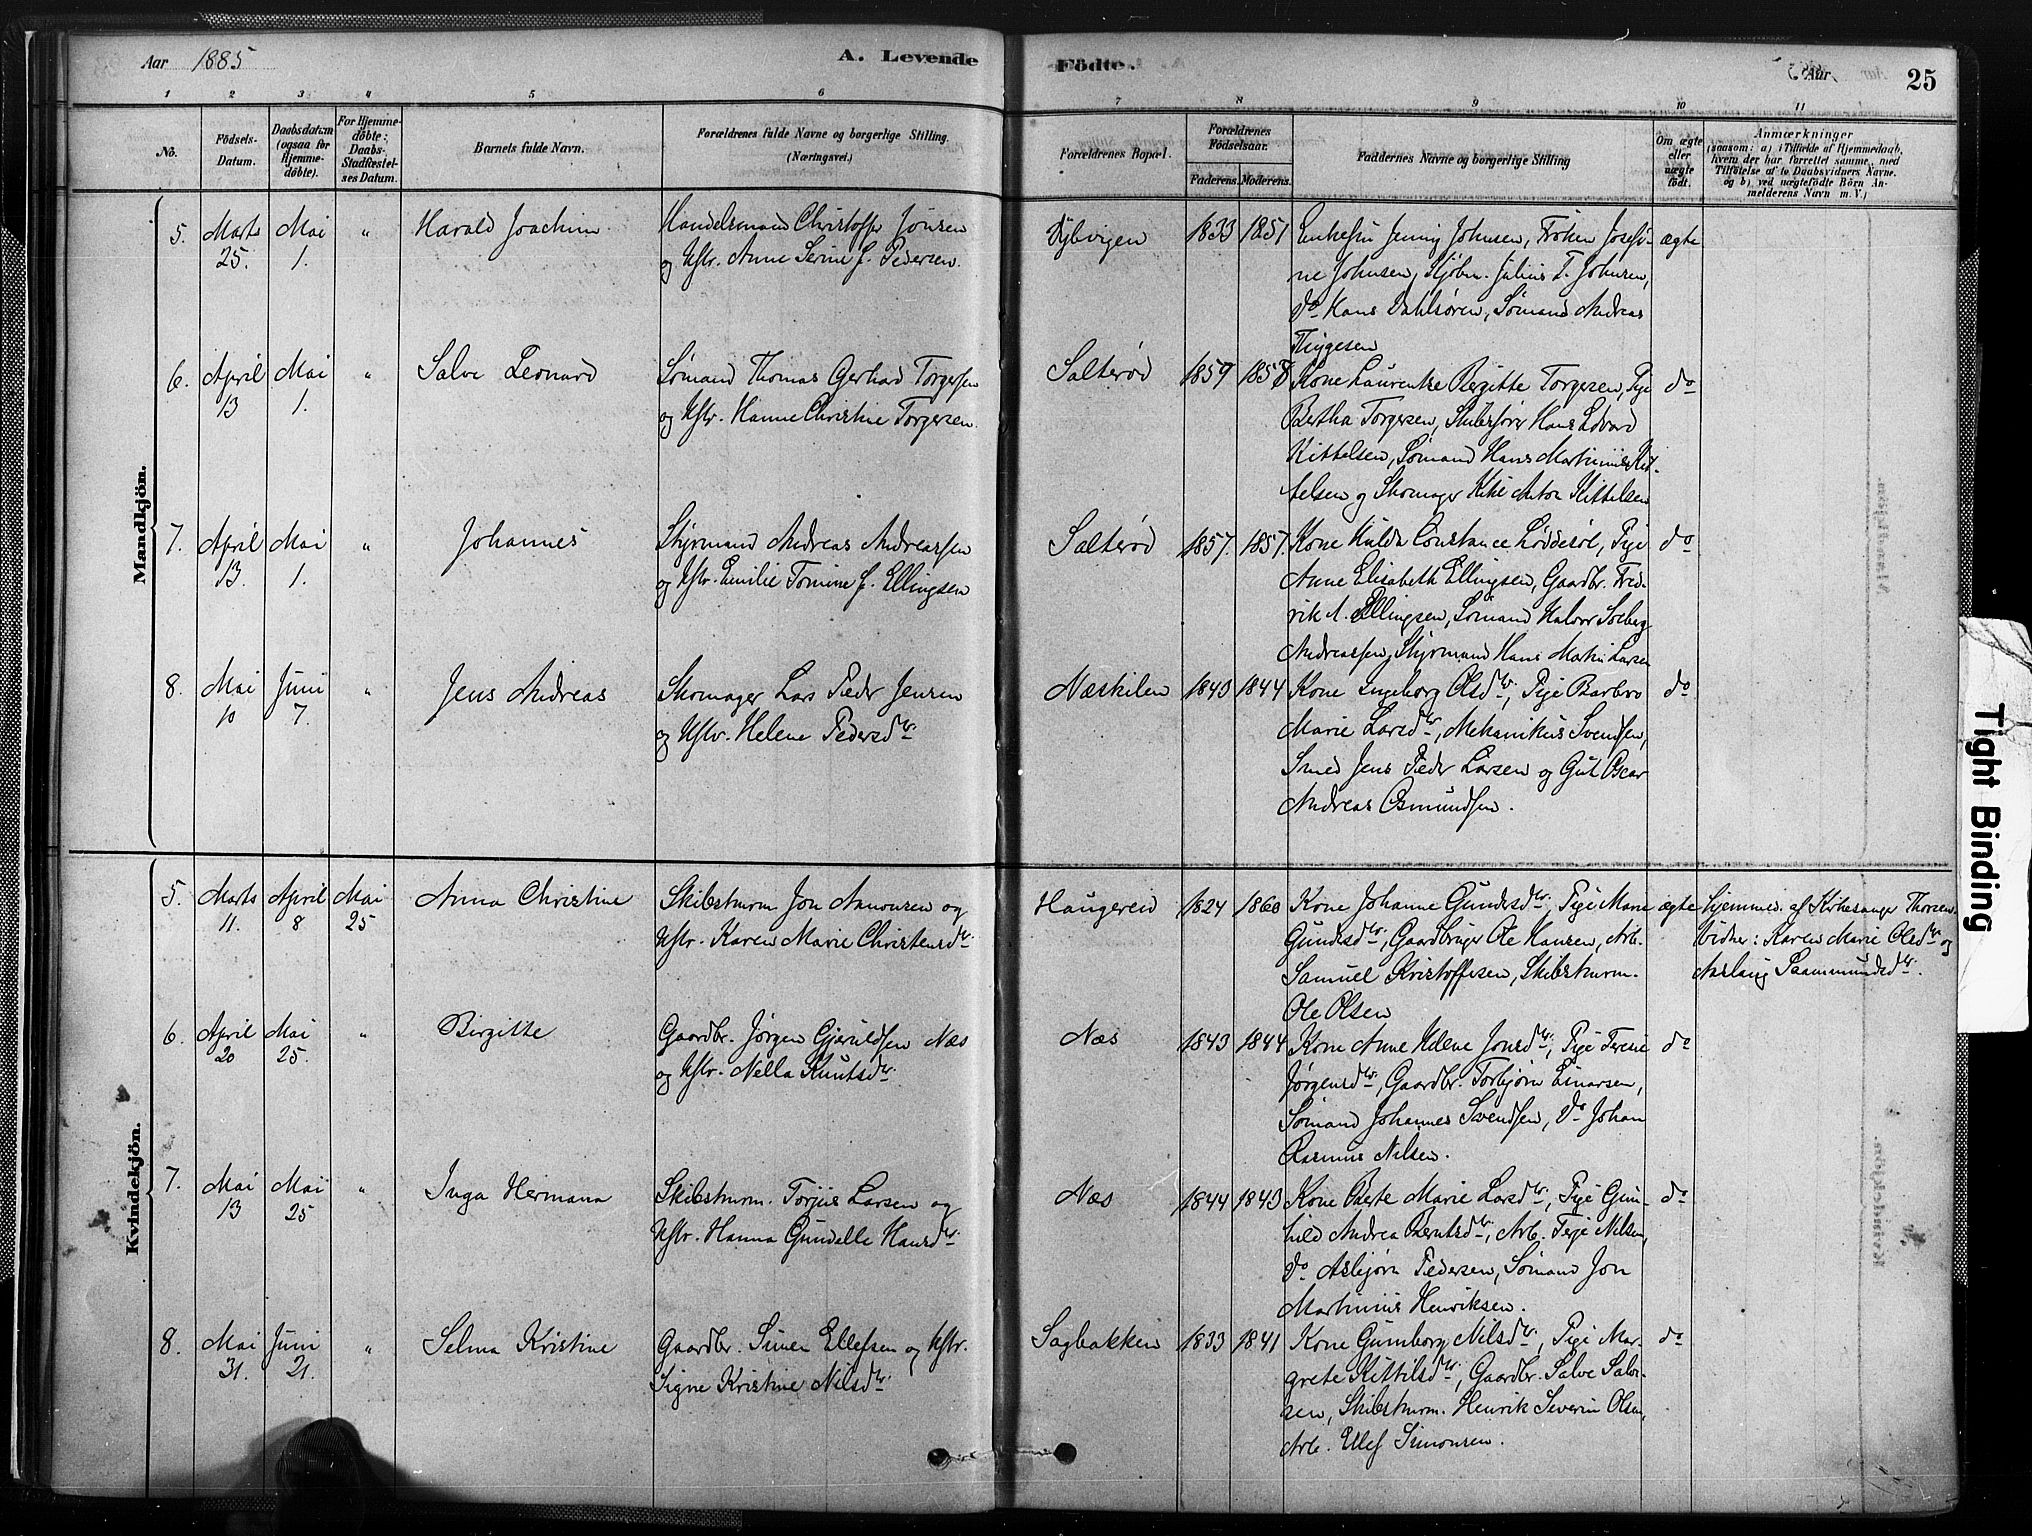 Aar 1885
A. Levende Födte.
Aar
25
1 2 3 4 5 6 7 8 9 10 11
No.
Födsels-Datum.
Daabsdatum (ogsaa for Hjemmedöbte).
For Hjemmedöbte: Daabs-Stadfæstelses Datum.
Barnets fulde Navn.
Forældrenes fulde Navne og borgerlige Stilling. (Næringsvei.)
Forældrenes Bopæl.
Forældrenes Födselsaar.
Faderens. Moderens.
Faddernes Navne og borgerlige Stilling
Om ægte eller uægte födt.
Anmærkninger
(saasom: a) i Tilfælde af Hjemmedaab,
hvem der har forrettet samme, med
Tilföielse af to Daabsvidners Navne.
og b) ved uægtefödte Börn An-
melderens Navn m. V.)
Mandkjön.
5. Marts 25. Mai 1. " Harald Joachim
Handelsmand Christoffer Jonsen
og Hstr. Anne Serine f. Pedersen
Dybvigen 1833 1851
Enkefru Jenny Johnsen, Frøken Josefi-
ne Johnsen, Kjøbm. Julius T. Johnsen,
do Hans Dahlsøren, Sømand Andreas
Thygesen
ægte
6. April 13 Mai 1. " Salve Leonard
Sømand Thomas Gerhard Torgersen
og Hstr. Hanne Christine Torgersen
Salterød 1859 1858
Kone Laurentze Bergitte Torgersen, Pige
Bertha Torgersen, Skibsfører Hans Edvard
Kittelsen, Sømand Hans Martinius Kit-
telsen og Skomager Anton Kittelsen
do
7. April 13. Mai 1. " Johannes
Styrmand Andreas Andreassen
og Hstr. Emilie Tomine f. Ellingsen
Salterød 1857. 1857.
Kone Hulda Constance Løddesøl, Pige
Anne Elisabeth Ellingsen, Gaardbr. Fred-
rik A. Ellingsen, Sømand Halvor Solberg
Andreassen, Styrmand Hans Martin Larsen
do
8. Mai 10 Juni 7. " Jens Andreas
Skomager Lars Peder Jensen
og Hstr. Helene Pedersdtr.
Næskilen 1843 1844
Kone Ingeborg Olsdtr, Pige Barbro
Marie Larsdtr, Mekanikus Svendsen,
Smed Jens Peder Larsen og Gut Oscar
Andreas Osmundsen.
do
Kvindekjön.
5. Marts 11. April 8 Mai 25 Anna Christine
Skibstmrm Jon Aanonsen og
Hstr. Karen Marie Christensdtr
Haugereid 1824 1860
Kone Johanne Gundersdtr, Pige Marie
Gundersdtr, Gaardbruger Ole Hansen, Arb.
Samuel Kristoffersen, Skibstmrm.
Ole Olsen
ægte
Hjemmed. af Kirkesanger Thorsen
Vidner: Karen Marie Olsdtr og
Aslaug Saamundsdtr.
6. April 20 Mai 25. " Birgitte
Gaardbr. Jørgen Gjeruldsen Næs
og Hstr. Nella Knutsdtr
Næs 1843 1844
Kone Anne Helene Jonsdtr, Pige Terese
Jørgensdtr, Gaardbr. Torbjørn Einarsen,
Sømand Johannes Svendsen, do Johan
Rasmus Nilsen.
do
7. Mai 13 Mai 25 " Inga Hermana
Skibstmrm. Torjus Larsen og
Hstr. Hanna Gundelle Hansdtr
Næs 1844 1843
Kone Berte Marie Larsdtr, Pige Gun-
hild Andrea Berntsdtr, Arb. Terje Nilsen,
do Asbjørn Pedersen, Sømand Jon
Martinius Henriksen.
do
8. Mai 31. Juni 21. " Selma Kristine
Gaardbr. Simen Ellefsen og Hstr.
Signe Kristine Nilsdtr
Sagbakken 1833 1841
Kone Gunborg Nilsdtr, Pige Mar-
grete Kittilsdtr, Gaardbr. Salve Salve-
sen, Skibstmrm. Henrik Severin Olsen,
Arb. Ellef Simonsen.
do
Tight Binding